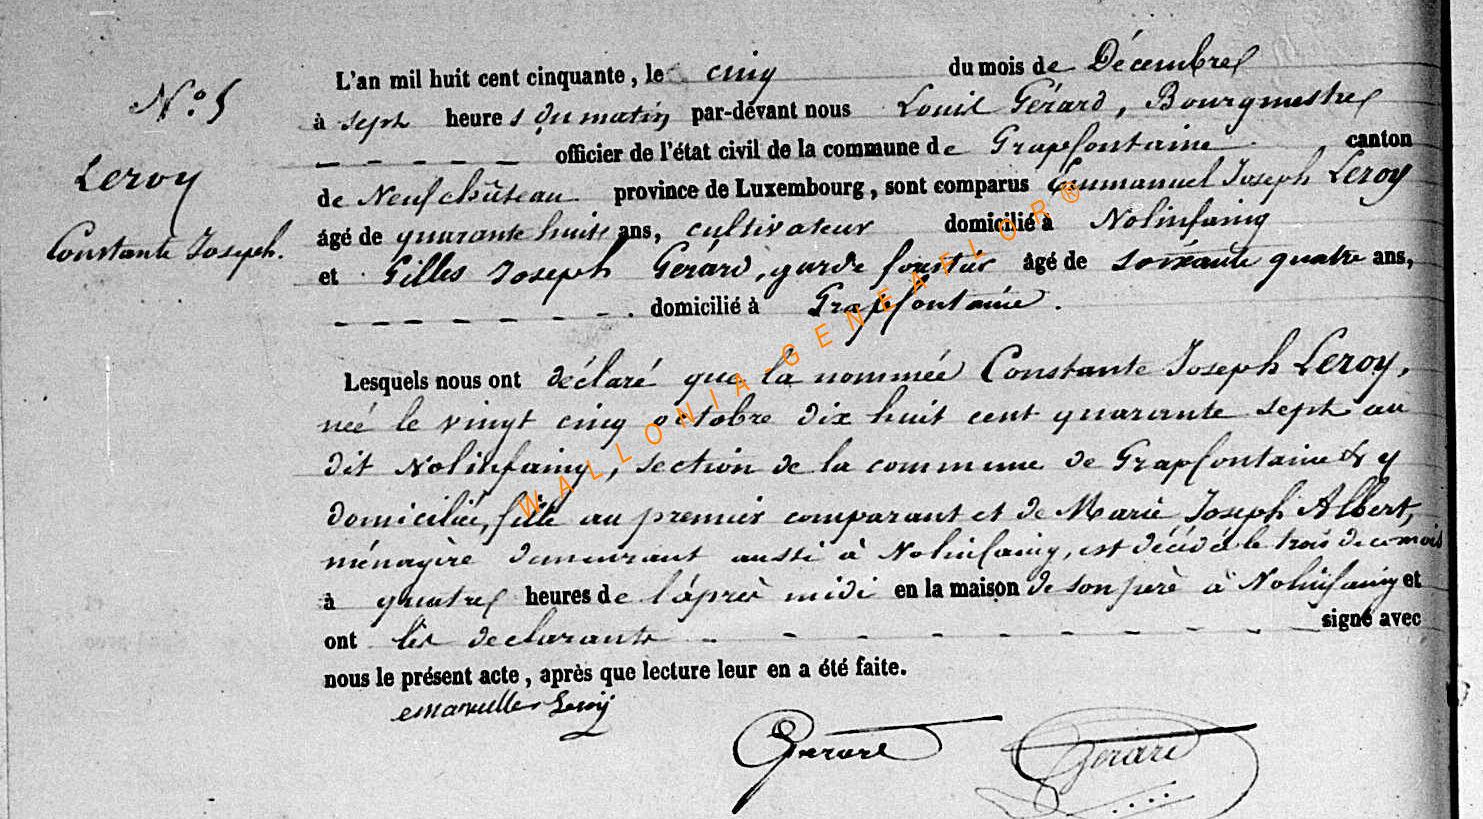 N.° 5
Leroy
Constante Joseph.
L'an mil huit cent cinquante, le cinq du mois de Décembre
à sept heures du matin par-dévant nous Louis Gérard, Bourgmestre
officier de l'état civil de la commune de Grapfontaine canton
de Neufchâteau province de Luxembourg, sont comparus Emmanuel Joseph Leroy
âgé de quarante huit ans, cultivateur domicilié à Nolinfaing
et Gilles Joseph Gérard, garde forestier âgé de soixante quatre ans,
domicilié à Grapfontaine.
Lesquels nous ont déclaré que la nommée Constante Joseph Leroy,
née le vingt cinq octobre dix huit cent quarante sept au
dit Nolinfaing, section de la commune de Grapfontaine & y
domiciliée, fille au premier comparant et de Marie Joseph Albert,
ménagère demeurant aussi à Nolinfaing, est décédée le trois de ce mois
à quatre heures de l'après midi en la maison de son père à Nolinfaing et
ont les déclarants signé avec
nous le présent acte, après que lecture leur en a été faite.
emanuelle Leroy
Gerard Gerard
WALLONIA-GENEAFLOR®